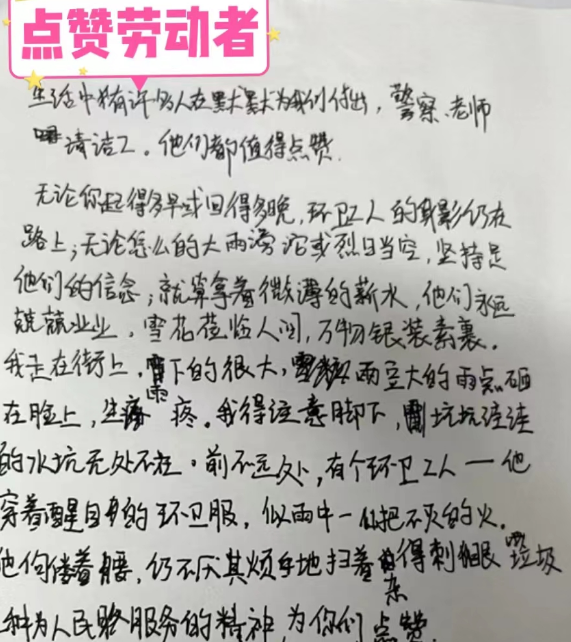 点赞劳动者
生活中有许多人在默默为我们付出，警察、老师
请洁工。他们都值得点赞.
无论你起得多早或回得多晚，环卫工人的身影仍在
路上；无论怎么的大雨滂沱或烈日当空，坚持是
他们的信念；就算拿着微薄的薪水，他们永远
兢兢业业，雪花莅临人间，万物银装素裹。
我走在街上，雨下的很大，雨豆大的雨点砸
在脸上，生疼。我得注意脚下，坑坑洼洼
的水坑无处不在．前不远处，有个环卫工人一他
穿着醒目的环卫服，似雨中一把不灭的火.
他佝偻着腰，仍不厌其烦地扫着得刺眼垃圾
种为人民服务的精神，为你们点赞.